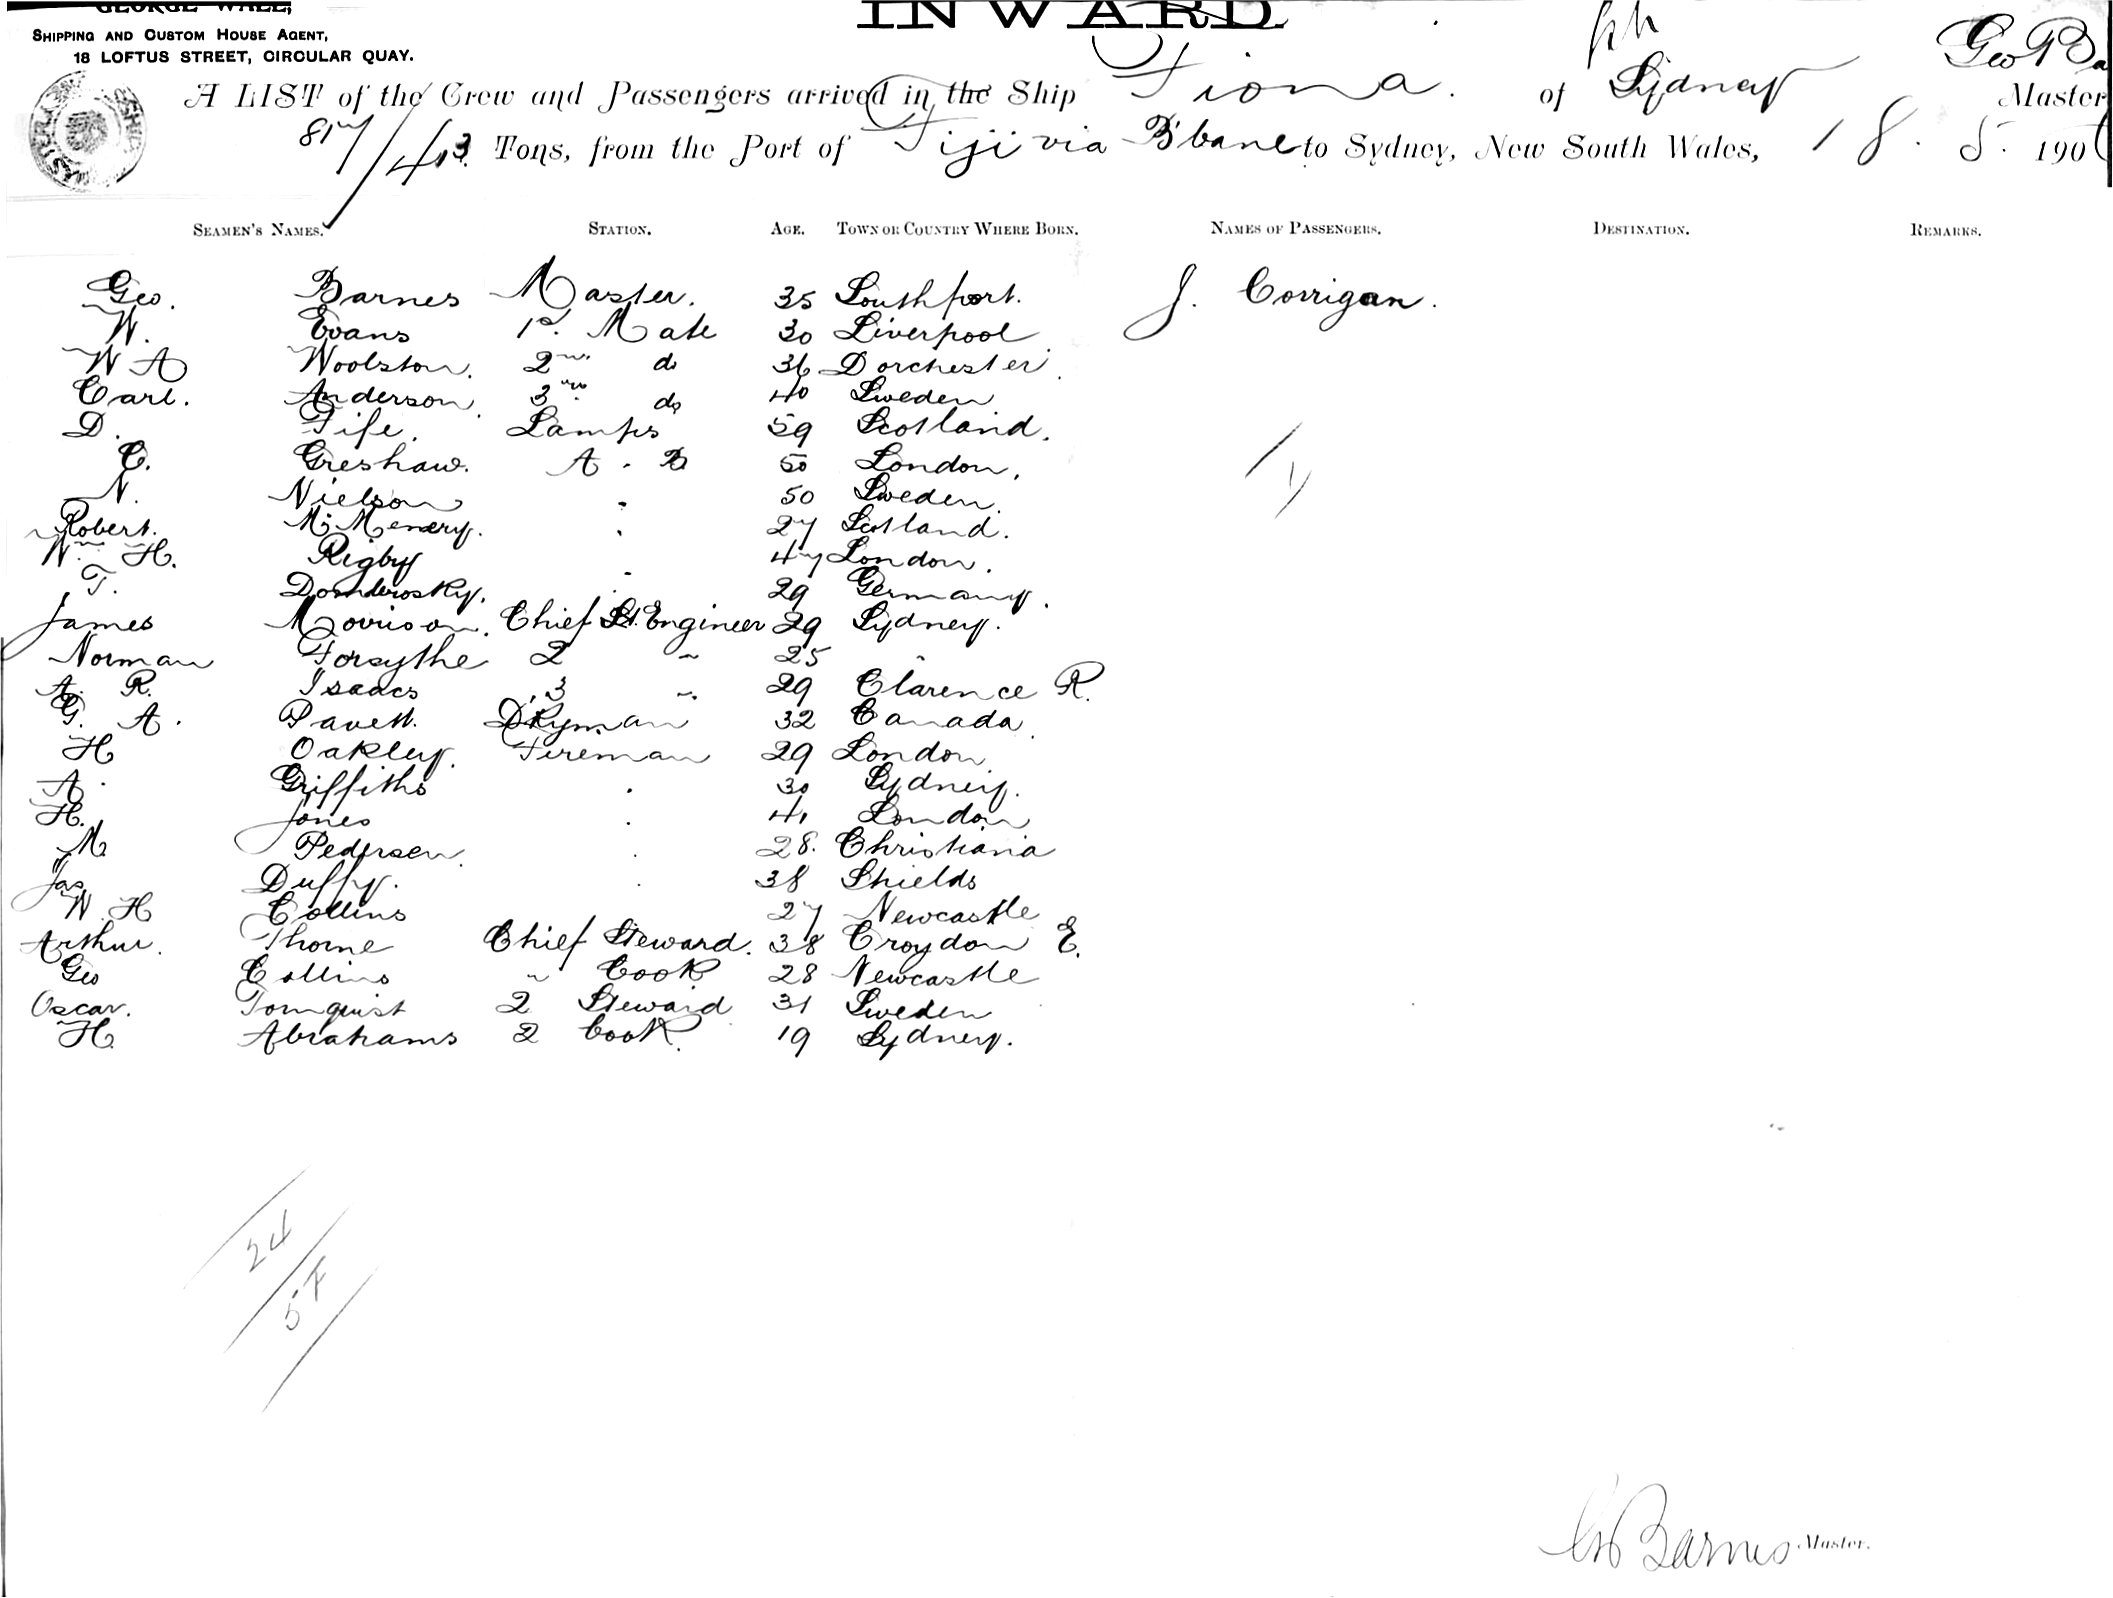 GEORGE WALL,
INWARD
SHIPPING AND CUSTOM HOUSE AGENT,
18 LOFTUS STREET, CIRCULAR QUAY.
A LIST of the Crew and Passengers arrived in the Ship Fiona. of Sydney Geo Ba Master
Tons, from the Port of Fiji via B'bane to Sydney, New South Wales, 18. 5. 190
SEAMEN'S NAMES. STATION. AGE. TOWN OR COUNTRY WHERE BORN. NAMES OF PASSENGERS. DESTINATION. REMARKS.
Geo. Barnes Master. 35 Southport. J. Corrigan.
W. Evans 1st. Mate 30 Liverpool
W A Woolston. 2nd do 36 Dorchester.
Carl. Anderson. 3rd do 40 Sweden
D. Fife. Lamps 59 Scotland.
C. Greshaw. A. B 50 London.
N. Nielson " 50 Sweden.
Robert. McMenery. " 27 Scotland.
Wm H. Rigby " 47 London.
T. Domberosky. " 29 Germany.
James Morrison. Chief Engineer 29 Sydney.
Norman Forsythe 2 " 25 "
A. R. Isaacs 3 " 29 Clarence R.
G. A. Pavett. Dkyman 32 Canada
H Oakley. Fireman 29 London
A. Griffiths " 30 Sydney.
H. Jones " 41 London
M Pedersen. " 28. Christiania
Jas Duffy. " 38 Shields
W. H Collins 27 Newcastle
Arthur. Thorne Chief Steward. 38 Croydon E.
Geo Collins " Cook 28 Newcastle
Oscar. Tornquist 2 Steward 31 Sweden
H. Abrahams 2 Cook. 19 Sydney.
24
57
G Barnes Master.